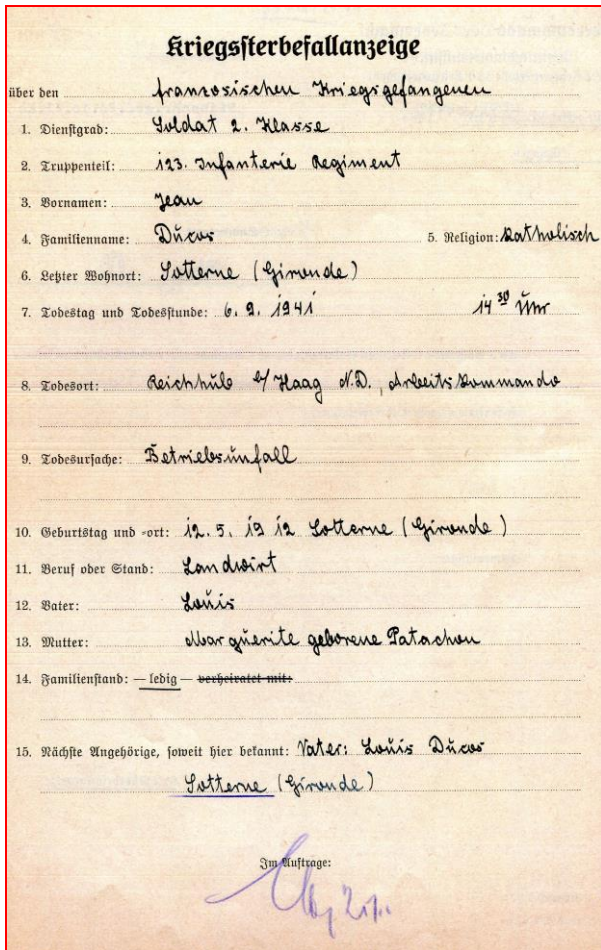 Kriegssterbefallanzeige
über den französischen Kriegsgefangenen
1. Dienstgrad: Soldat 2. Klasse
2. Truppenteil: 123. Infanterie Regiment
3. Vornamen: Jean
4. Familienname: Ducos 5. Religion: Katholisch
6. Letzter Wohnort: Sotterne (Gironde)
7. Todestag und Todesstunde: 6. 9. 1941 14 30 Uhr
8. Todesort: Reichhub b/ Haag N.D., Arbeitskommando
9. Todesursache: Betriebsunfall
10. Geburtstag und -ort: 12. 5. 1912 Sotterne (Gironde)
11. Beruf oder Stand: Landwirt
12. Vater: Louis
13. Mutter: Marguerite geborene Patachon
14. Familienstand: — ledig — verheiratet mit:
15. Nächste Angehörige, soweit hier bekannt: Vater: Louis Ducos
Sotterne (Gironde)
Im Auftrage: